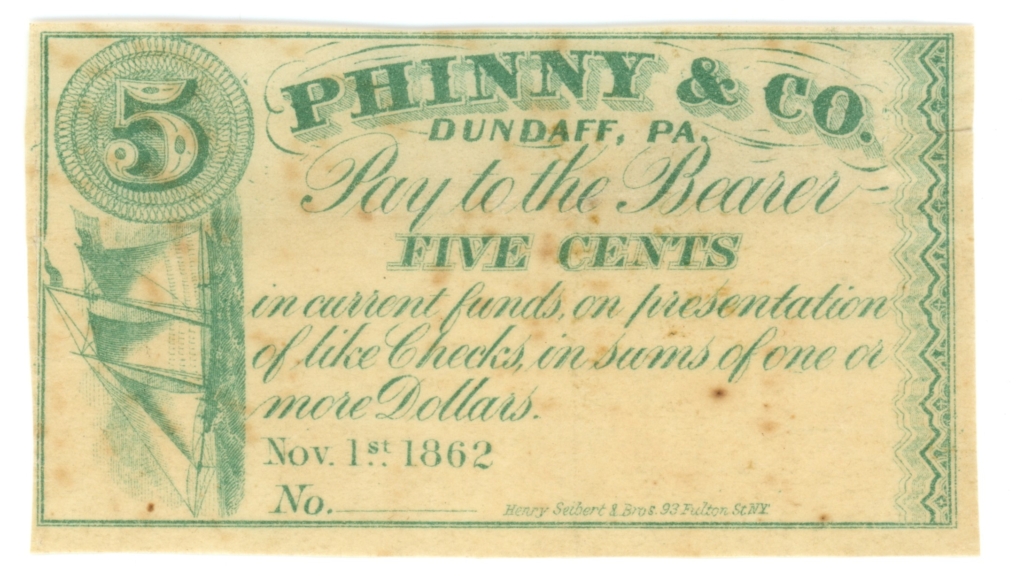 5
PHINNY & CO.
DUNDAFF, PA.
Pay to the Bearer
FIVE CENTS
in current funds, on presentation
of like Checks, in sums of one or
more Dollars.
Nov. 1st. 1862
No.
Henry Seibert & Bros. 93 Fulton St. N.Y.